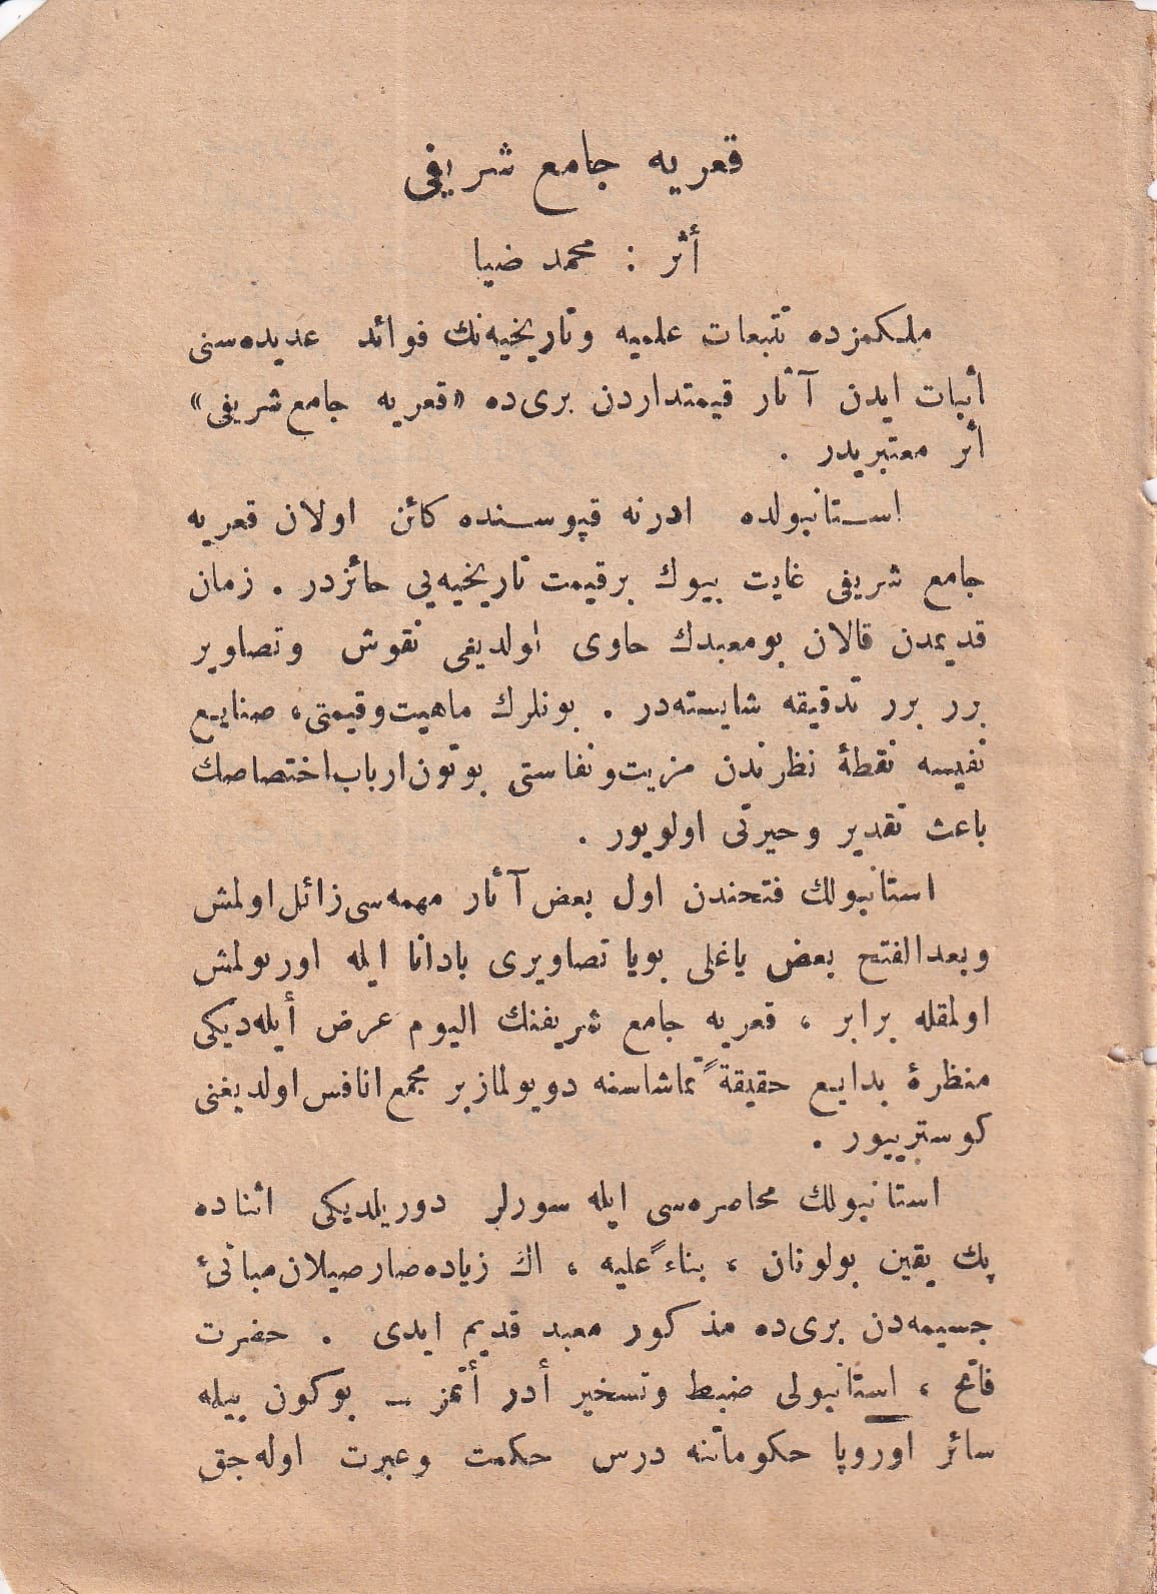 قعریه جامع شریفی
أثر : محمد ضیا
ملکمزده تتبعات علمیه وتاریخیه‌نك فوائد عدیده‌سنی
أثبات ایدن آثار قیمتداردن بری‌ده «قعریه جامع شریفی»
أثر معتبریدر .
استانبولده ادرنه قپوسنده کائن اولان قعریه
جامع شریفی غایت بیوك برقیمت تاریخیه‌یی حائزدر . زمان
قدیمدن قالان بومعبدك حاوی اولدیغی نقوش وتصاویر
برر برر تدقیقه شایسته‌در . بونلرك ماهیت‌وقیمتی، صنایع
نفیسه نقطهٔ نظرندن مزیت‌ونفاستی بوتون‌ارباب‌اختصاصك
باعث تقدیر وحیرتی اولویور .
استانبولك فتحندن اول بعض آثار مهمه‌سی زائل‌اولمش
وبعدالفتح بعض یاغلی بویا تصاویری بادانا ایله اورتولمش
اولمقله برابر ، قعریه جامع شریفنك الیوم عرض أیله‌دیکی
منظرهٔ بدایع حقیقةً تماشاسنه دویولماز بر مجمع انافس اولدیغنی
کوسترییور .
استانبولك محاصره‌سی ایله سورلر دوریلدیکی اثناده
پك یقین بولونان ، بناءً علیه ، اك زیاده صارصیلان مبانیٔ
جسیمه‌دن بری‌ده مذکور معبد قدیم ایدی . حضرت
فاتح ، استانبولی ضبط وتسخیر أدر أتمز ــ بوکون بیله
سائر اوروپا حکوماتنه درس حکمت وعبرت اوله‌جق